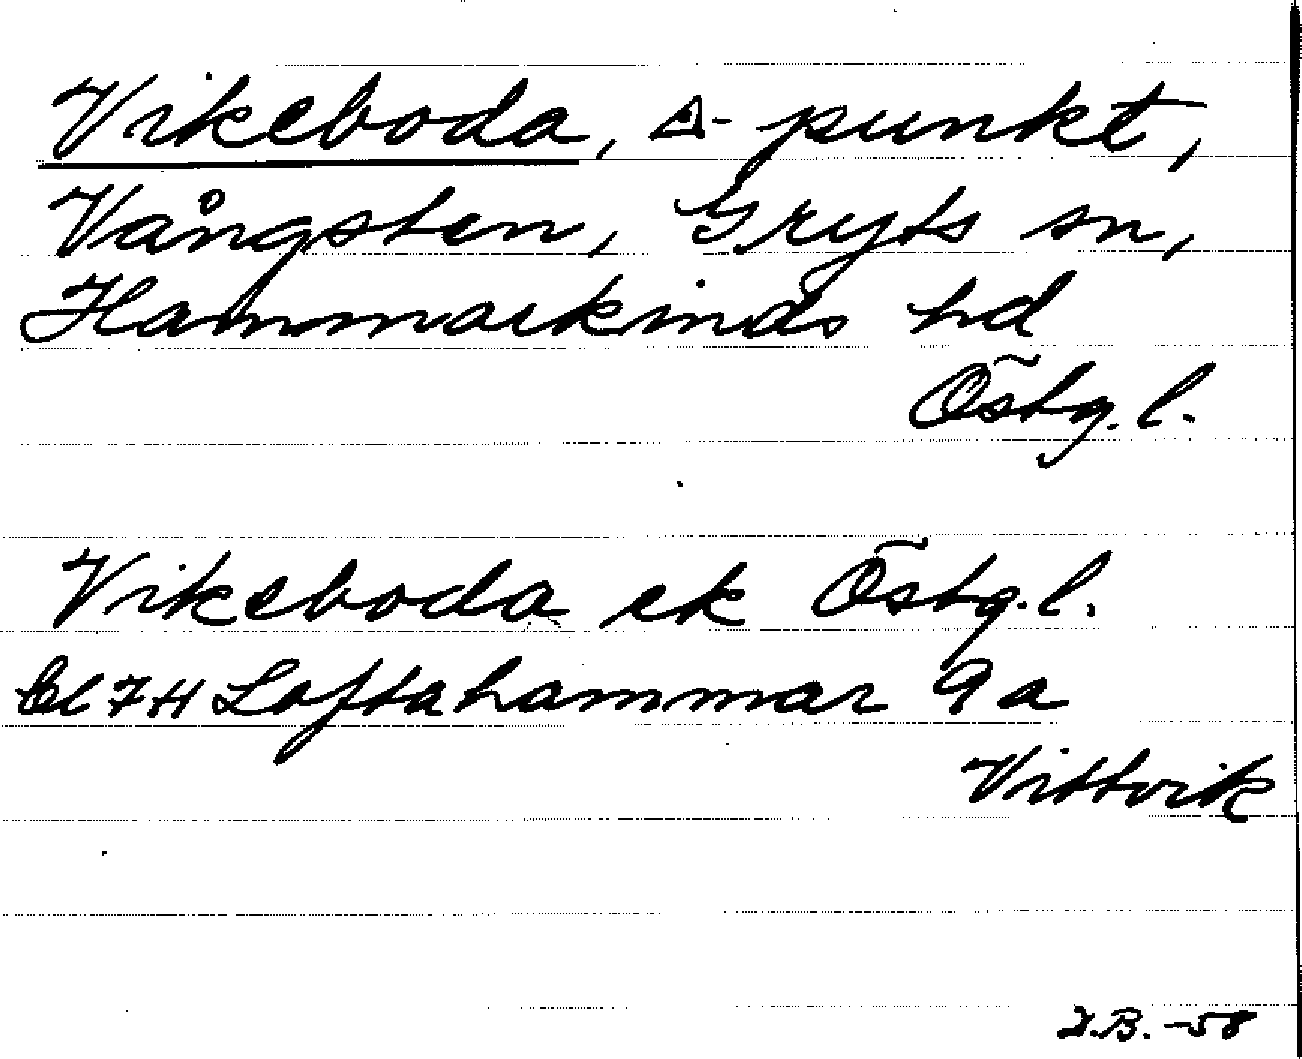 Vikeboda, △-punkt,
Vångsten, Gryts sn,
Hammarkinds hd
Östg. l.
Vikeboda ek Östg. l.
bl 7H Loftahammar 9a
Vittvik
I.B. -58